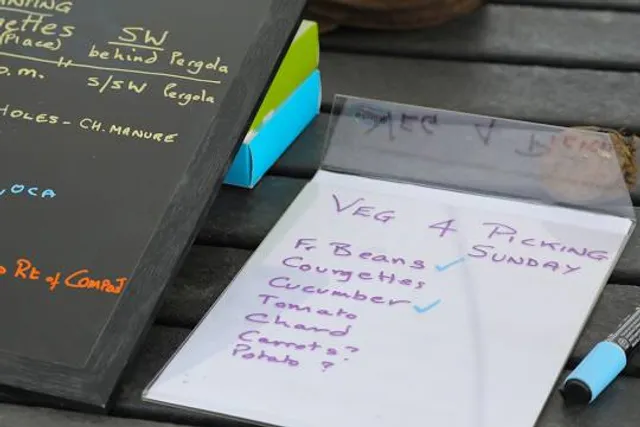 ettes
(Place)
SW
behind Pergola
S/SW Pergola
O.M.
HOLES - CH. MANURE
, OCA
Rt of Compost
VEG 4 PICKING
SUNDAY
Fr Beans ✓
Courgettes
Cucumber ✓
Tomato
Chard
Carrots?
Potato ?